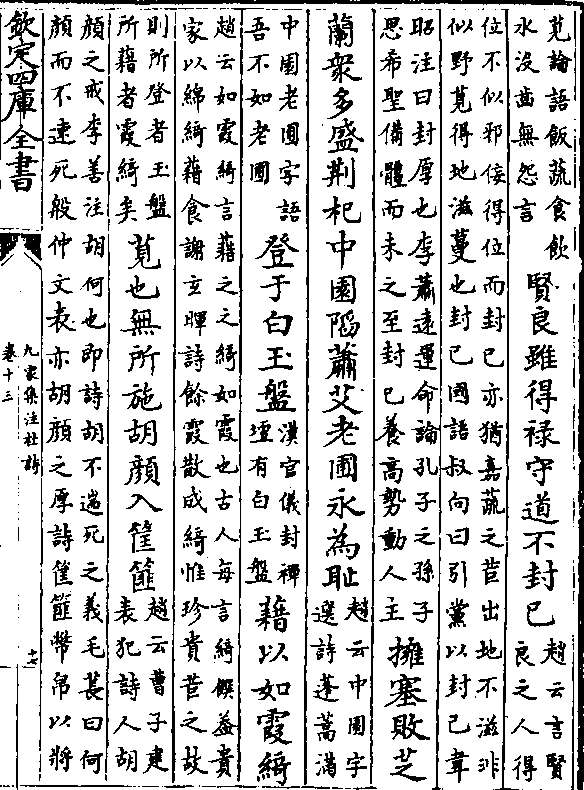 莧論語飯蔬食飲
水没齒無怨言
賢良雖得祿守道不封已
趙云言賢
良之人得
位不似邪佞得位而封已亦猶嘉蔬之苣出地不滋非
似野莧得地滋蔓也封已國語叔向曰引黨以封已韋
昭注曰封厚也李蕭遠運命論孔子之孫子
思希聖備體而未之至封已養高勢動人主
擁塞敗芝
蘭衆多盛荆杞中園陷蕭艾老圃永為恥
趙云中園字
選詩蓬蒿滿
中園老圃字語
吾不如老圃
登于白玉盤
漢官儀封禪
壇有白玉盤
藉以如霞綺
趙云如霞綺言藉之之綺如霞也古人每言綺饌葢貴
家以綿綺藉食謝玄暉詩餘霞散成綺惟珍貴苣之故
則所登者玉盤
所藉者霞綺矣
莧也無所施胡顔入筐篚
趙云曹子建
表犯詩人胡
顔之戒李善注胡何也即詩胡不遄死之義毛萇曰何
顔而不速死殷仲文表亦胡顔之厚詩筐篚幣帛以將
欽定四庫全書
九家集注杜詩
卷十三
十七